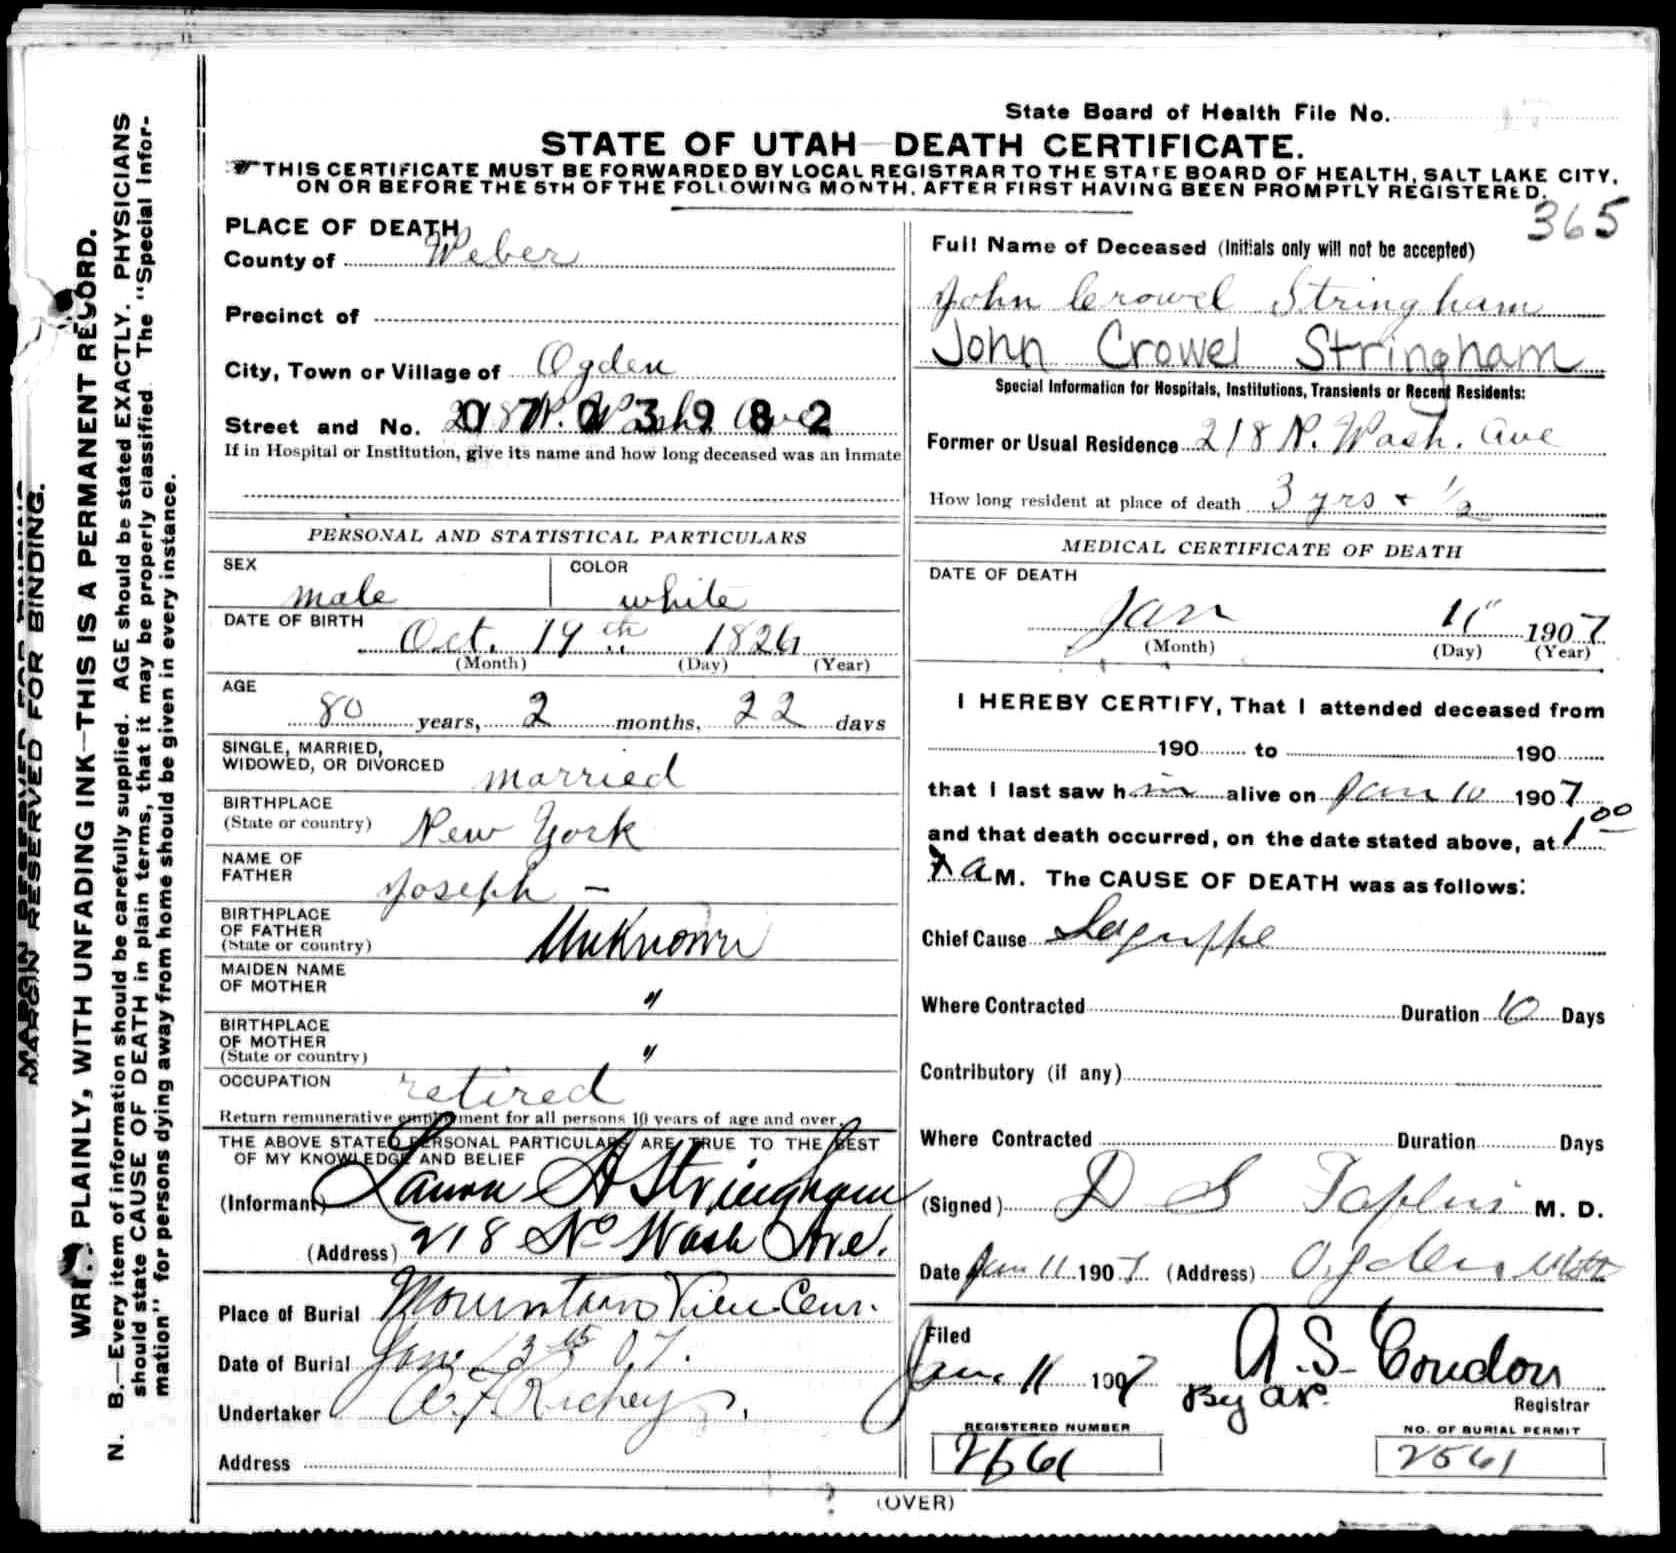 State Board of Health File No.
STATE OF UTAH—DEATH CERTIFICATE.
THIS CERTIFICATE MUST BE FORWARDED BY LOCAL REGISTRAR TO THE STATE BOARD OF HEALTH, SALT LAKE CITY,
ON OR BEFORE THE 5TH OF THE FOLLOWING MONTH, AFTER FIRST HAVING BEEN PROMPTLY REGISTERED.
365
MARGIN RESERVED FOR BINDING.
WRITE PLAINLY, WITH UNFADING INK—THIS IS A PERMANENT RECORD.
N. B.—Every item of information should be carefully supplied. AGE should be stated EXACTLY. PHYSICIANS
should state CAUSE OF DEATH in plain terms, that it may be properly classified. The "Special Infor-
mation" for persons dying away from home should be given in every instance.
PLACE OF DEATH
County of Weber
Precinct of
City, Town or Village of Ogden
Street and No. 218 N. Wash. Ave
0702982
If in Hospital or Institution, give its name and how long deceased was an inmate
PERSONAL AND STATISTICAL PARTICULARS
SEX male COLOR white
DATE OF BIRTH Oct. 19th 1826
(Month) (Day) (Year)
AGE
80 years, 2 months, 22 days
SINGLE, MARRIED,
WIDOWED, OR DIVORCED married
BIRTHPLACE
(State or country) New York
NAME OF
FATHER Joseph —
BIRTHPLACE
OF FATHER
(State or country) Unknown
MAIDEN NAME
OF MOTHER "
BIRTHPLACE
OF MOTHER
(State or country) "
OCCUPATION retired
Return remunerative employment for all persons 10 years of age and over.
THE ABOVE STATED PERSONAL PARTICULARS ARE TRUE TO THE BEST
OF MY KNOWLEDGE AND BELIEF
(Informant) Laura A Stringham
(Address) 218 No Wash Ave.
Place of Burial Mountain View Cem.
Date of Burial Jan. 13th 07.
Undertaker Richey
Address
Full Name of Deceased (Initials only will not be accepted)
John Crowel Stringham
John Crowel Stringham
Special Information for Hospitals, Institutions, Transients or Recent Residents:
Former or Usual Residence 218 N. Wash. Ave
How long resident at place of death 3 yrs + 1/2
MEDICAL CERTIFICATE OF DEATH
DATE OF DEATH
Jan 11 1907
(Month) (Day) (Year)
I HEREBY CERTIFY, That I attended deceased from
190 to 190
that I last saw him alive on Jan 10 1907
and that death occurred, on the date stated above, at 1 00
a M. The CAUSE OF DEATH was as follows:
Chief Cause Lagrippe
Where Contracted Duration 10 Days
Contributory (if any)
Where Contracted Duration Days
(Signed) D S Taplin M. D.
Date Jan 11 1907 (Address) Ogden Utah
Filed
Jan. 11 1907 A. S. Condon
By
Registrar
REGISTERED NUMBER
2561
NO. OF BURIAL PERMIT
2561
(OVER)